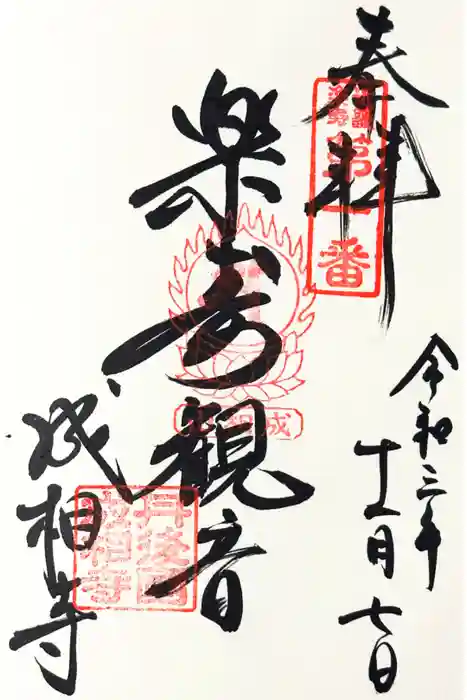 奉拝
第一番
楽寿観音
成相
令和三年
十一月七日
丹後國
成相寺
成相寺